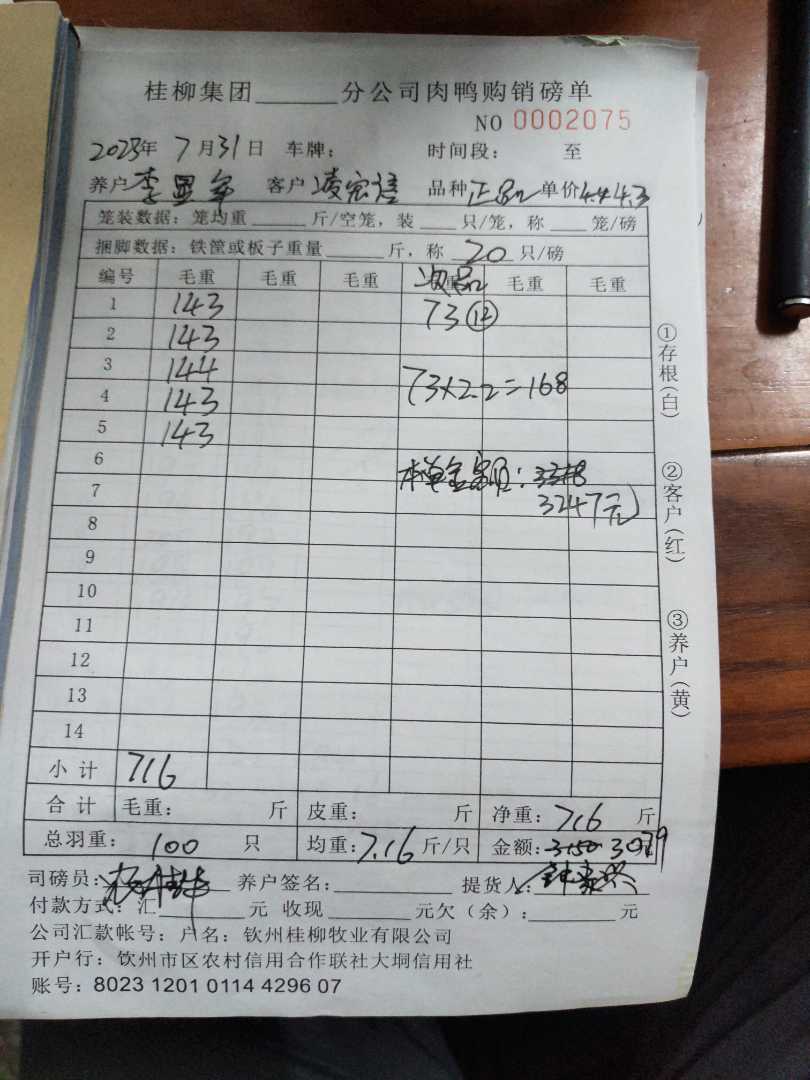 桂柳集团______分公司肉鸭购销磅单
NO 0002075
2023年 7月31日 车牌： 时间段： 至
养户 李显军 客户 凌宏信 品种 正品 单价 4.4 4.3
笼装数据：笼均重______斤/空笼，装____只/笼，称____笼/磅
捆脚数据：铁筐或板子重量______斤，称 20 只/磅
编号 毛重 毛重 毛重 次品 毛重 毛重
1 143 73 ⑫
2 143
3 144 73×2.2=168
4 143
5 143
6 本单金额：
7 3247元
8
9
10
11
12
13
14
小计 716
合计 毛重： 斤 皮重： 斤 净重：716 斤
总羽重： 100 只 均重：7.16 斤/只 金额：3150 3079
司磅员： 养户签名： 提货人：
付款方式：汇______元 收现______元欠（余）：______元
公司汇款帐号：户名：钦州桂柳牧业有限公司
开户行：钦州市区农村信用合作联社大垌信用社
账号：8023 1201 0114 4296 07
①存根（白）
②客户（红）
③养户（黄）